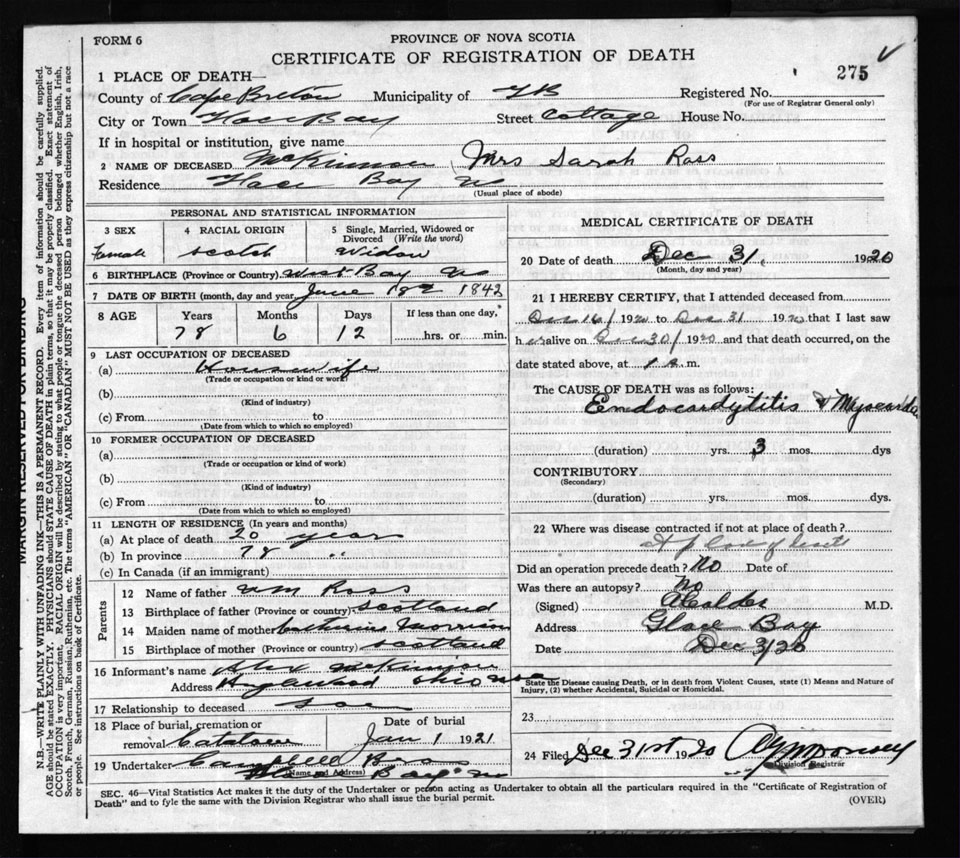 FORM 6
PROVINCE OF NOVA SCOTIA
CERTIFICATE OF REGISTRATION OF DEATH
275
1 PLACE OF DEATH—
County of Cape Breton Municipality of Registered No.
(For use of Registrar General only)
City or Town Glace Bay Street Cottage House No.
If in hospital or institution, give name
2 NAME OF DECEASED McKinnon Mrs Sarah Ross
Residence Glace Bay NS
(Usual place of abode)
PERSONAL AND STATISTICAL INFORMATION
3 SEX 4 RACIAL ORIGIN 5 Single, Married, Widowed or Divorced (Write the word)
Female Scotch Widow
6 BIRTHPLACE (Province or Country) West Bay NS
7 DATE OF BIRTH (month, day and year) June 18 1842
8 AGE Years Months Days If less than one day,
78 6 12 hrs. or min.
9 LAST OCCUPATION OF DECEASED
(a) Housewife
(Trade or occupation or kind or work)
(b)
(Kind of industry)
(c) From to
(Date from which to which so employed)
10 FORMER OCCUPATION OF DECEASED
(a)
(Trade or occupation or kind of work)
(b)
(Kind of industry)
(c) From to
(Date from which to which so employed)
11 LENGTH OF RESIDENCE (In years and months)
(a) At place of death 20 years
(b) In province 78 "
(c) In Canada (if an immigrant)
Parents
12 Name of father Wm Ross
13 Birthplace of father (Province or country) Scotland
14 Maiden name of mother Catherine Morrison
15 Birthplace of mother (Province or country) Scotland
16 Informant's name Alex McKinnon
Address Ohio USA
17 Relationship to deceased Son
18 Place of burial, cremation or Date of burial
removal Catalone Jan 1 1921
19 Undertaker Campbell
(Name and Address) Glace Bay NS
MEDICAL CERTIFICATE OF DEATH
20 Date of death Dec 31 1920
(Month, day and year)
21 I HEREBY CERTIFY, that I attended deceased from
Dec 16/ 1920 to Dec 31 1920 that I last saw
h er alive on Dec 30/ 1920 and that death occurred, on the
date stated above, at 1 a. m.
The CAUSE OF DEATH was as follows:
Endocardytitis &
(duration) yrs. 3 mos. dys
CONTRIBUTORY
(Secondary)
(duration) yrs. mos. dys.
22 Where was disease contracted if not at place of death?
At place of death
Did an operation precede death? No Date of
Was there an autopsy? No
(Signed) M.D.
Address Glace Bay
Date Dec 31/20
State the Disease causing Death, or in death from Violent Causes, state (1) Means and Nature of
Injury, (2) whether Accidental, Suicidal or Homicidal.
23
24 Filed Dec 31st 1920
Division Registrar
SEC. 46—Vital Statistics Act makes it the duty of the Undertaker or person acting as Undertaker to obtain all the particulars required in the "Certificate of Registration of
Death" and to fyle the same with the Division Registrar who shall issue the burial permit.
(OVER)
MARGIN RESERVED FOR BINDING
N.B.—WRITE PLAINLY WITH UNFADING INK—THIS IS A PERMANENT RECORD. Every item of information should be carefully supplied.
AGE should be stated EXACTLY. PHYSICIANS should STATE CAUSE OF DEATH in plain terms, so that it may be properly classified. Exact statement of
OCCUPATION is very important. RACIAL ORIGIN will be described by stating to what people or tongue the deceased person belonged whether English, Irish,
Scotch, French, German, Russian, Ruthenian, etc. The terms "AMERICAN" or "CANADIAN" MUST NOT BE USED as they express citizenship but not a race
or people. See instructions on back of Certificate.